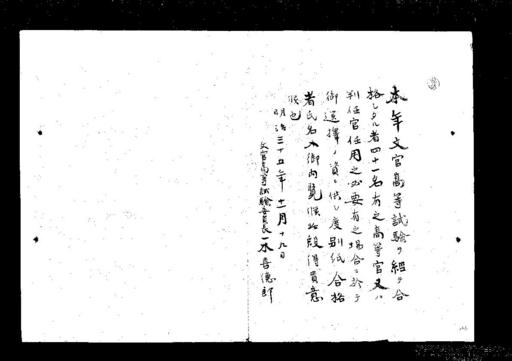 本年文官高等試験ヲ経テ合
格シタル者四十一名有之高等官又ハ
判任官任用之必要有之場合ニ於テ
御選擇ノ資ニ供シ度別紙合格
者氏名入御内覧候此段得貴意
候也
明治三十五年十一月十九日
文官高等試験委員長一木喜徳郎